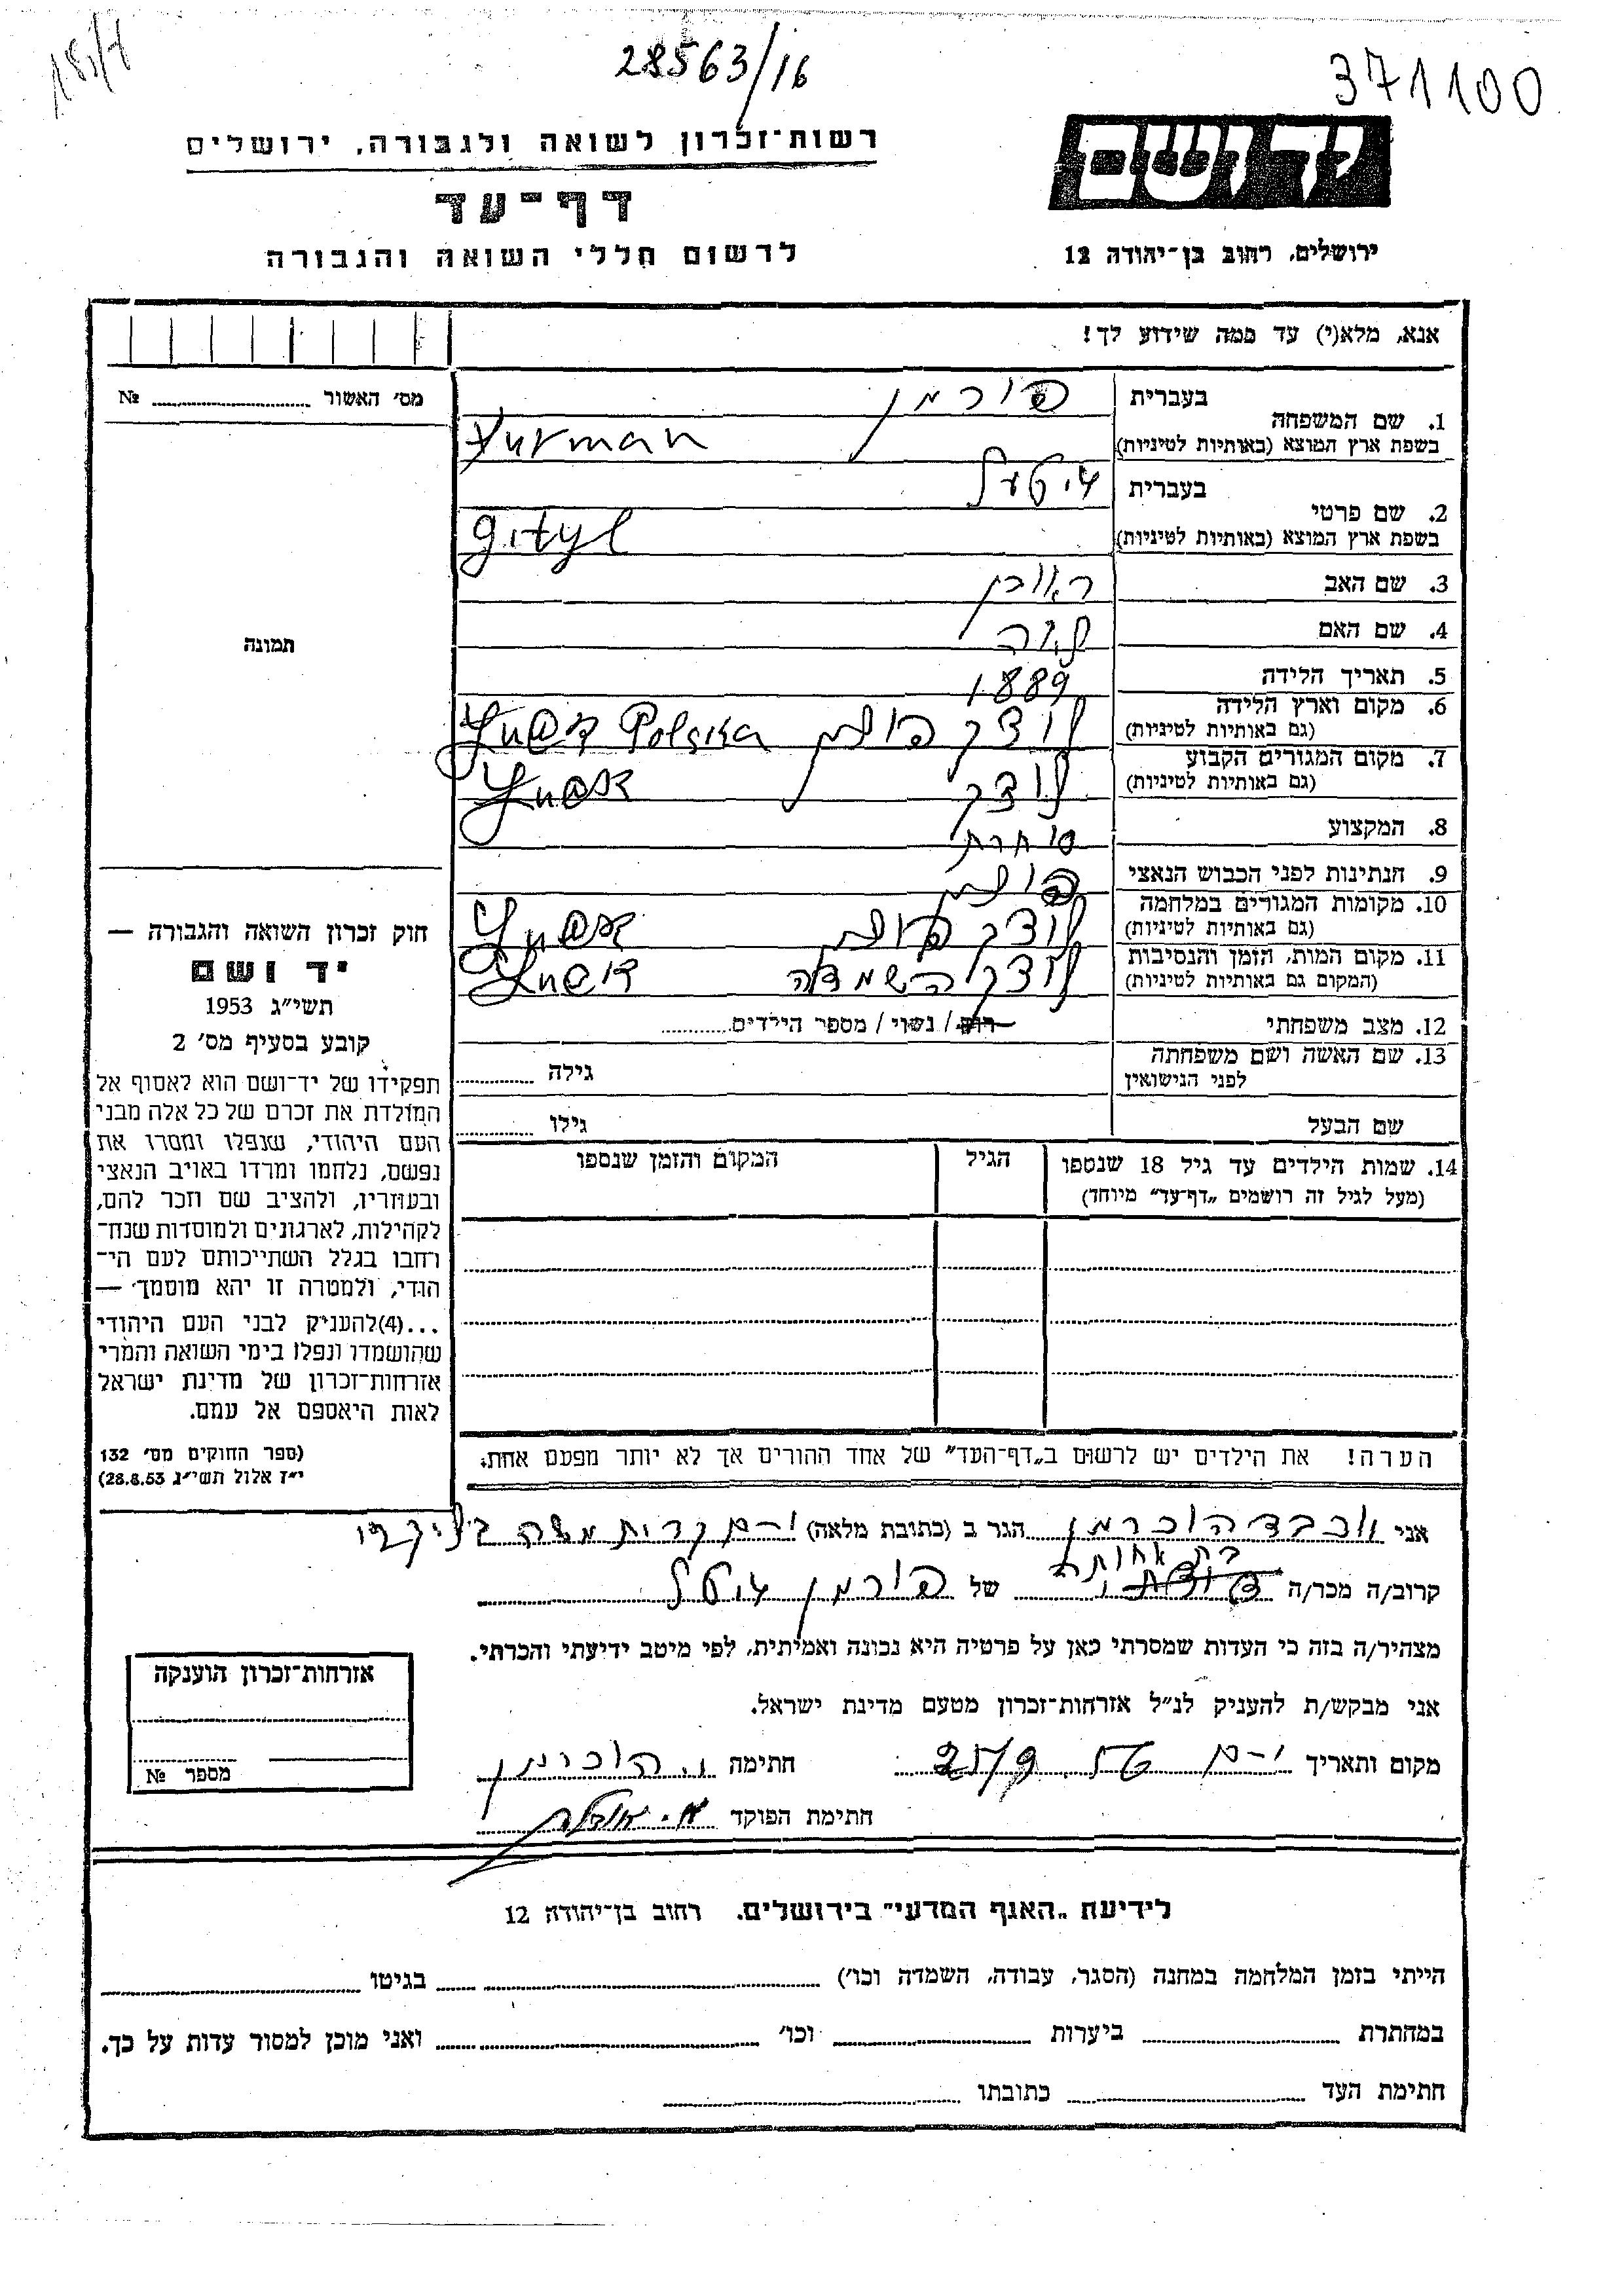 28563/16
371100
רשות־זכרון לשואה ולגבורה, ירושלים
יד ושם
דף־עד
לרשום חללי השואה והגבורה
ירושלים, רחוב בן־יהודה 12
אנא, מלא(י) עד כמה שידוע לך!
מס׳ האשור № ........
1. שם המשפחה בעברית פורמן
בשפת ארץ המוצא (באותיות לטיניות) Furman
2. שם פרטי בעברית גיטל
בשפת ארץ המוצא (באותיות לטיניות) gityl
3. שם האב ראובן
4. שם האם
5. תאריך הלידה 1889
6. מקום וארץ הלידה
(גם באותיות לטיניות) פולין Polska
7. מקום המגורים הקבוע
(גם באותיות לטיניות)
8. המקצוע סוחרת
9. הנתינות לפני הכבוש הנאצי פולין
10. מקומות המגורים במלחמה
(גם באותיות לטיניות) פולין
11. מקום המות, הזמן והנסיבות
(המקום גם באותיות לטיניות) השמדה
12. מצב משפחתי רוק / נשוי / מספר הילדים........
13. שם האשה ושם משפחתה
לפני הנישואין גילה ........
שם הבעל גילו ........
14. שמות הילדים עד גיל 18 שנספו הגיל המקום והזמן שנספו
(מעל לגיל זה רושמים „דף־עד״ מיוחד)
הערה! את הילדים יש לרשום ב„דף־העד״ של אחד ההורים אך לא יותר מפעם אחת.
תמונה
חוק זכרון השואה והגבורה —
יד ושם
תשי״ג 1953
קובע בסעיף מס׳ 2
תפקידו של יד־ושם הוא לאסוף אל
המולדת את זכרם של כל אלה מבני
העם היהודי, שנפלו ומסרו את
נפשם, נלחמו ומרדו באויב הנאצי
ובעוזריו, ולהציב שם וזכר להם,
לקהילות, לארגונים ולמוסדות שנח־
רבו בגלל השתייכותם לעם הי־
הודי, ולמטרה זו יהא מוסמך —
...(4)להעניק לבני העם היהודי
שהושמדו ונפלו בימי השואה והמרי
אזרחות־זכרון של מדינת ישראל
לאות היאספם אל עמם.
(ספר החוקים מס׳ 132
י״ז אלול תשי״ג 28.8.53)
אני הוכרמן הגר ב (כתובת מלאה) י-ם קרית
בת אחותה
קרוב/ה מכר/ה של פורמן גיטל
מצהיר/ה בזה כי העדות שמסרתי כאן על פרטיה היא נכונה ואמיתית, לפי מיטב ידיעתי והכרתי.
אני מבקש/ת להעניק לנ״ל אזרחות־זכרון מטעם מדינת ישראל.
מקום ותאריך י-ם חתימה הוכרמן
חתימת הפוקד
אזרחות־זכרון הוענקה
מספר №
לידיעת „האגף המדעי״ בירושלים. רחוב בן־יהודה 12
הייתי בזמן המלחמה במחנה (הסגר, עבודה, השמדה וכו׳) ........ בגיטו ........
במחתרת ........ ביערות ........ וכו׳ ........ ואני מוכן למסור עדות על כך.
חתימת העד ........ כתובתו ........